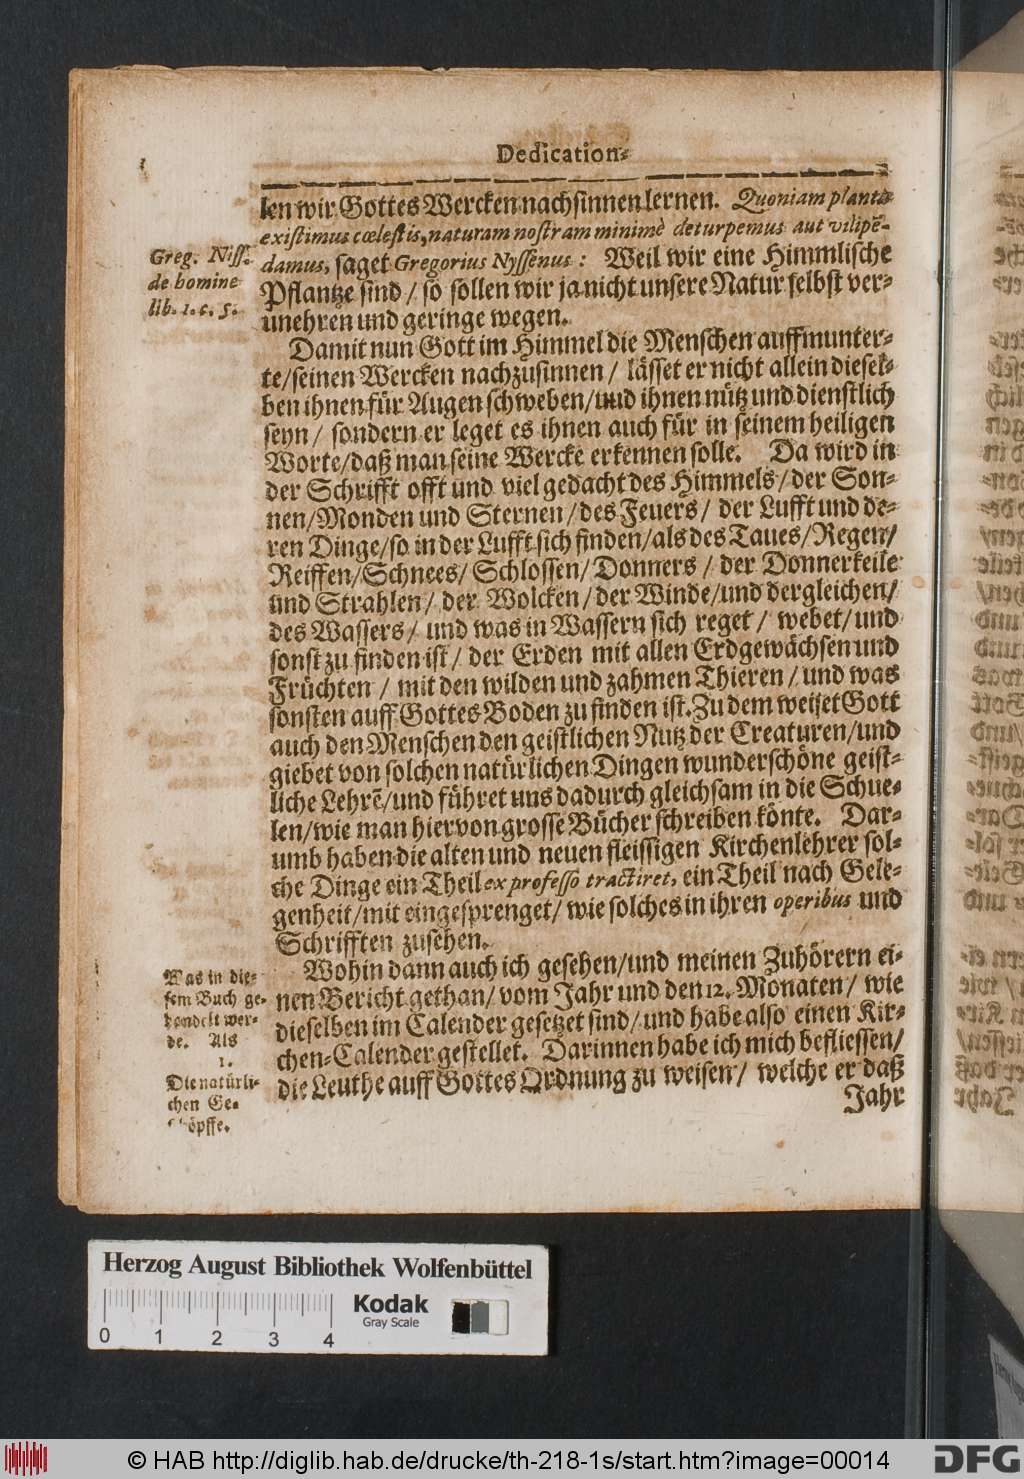 Dedication-
len wir Gottes Wercken nachsinnen lernen. Quoniam planta
existimus cœlestis, naturam nostram minimè deturpemus aut vilipē-
damus, saget Gregorius Nyssenus: Weil wir eine Himmlische
Pflantze sind / so sollen wir ja nicht unsere Natur selbst ver-
unehren und geringe wegen.
Greg. Niss.
de homine
lib. 1. c. 5.
Damit nun Gott im Himmel die Menschen auffmunter-
te/seinen Wercken nachzusinnen / lässet er nicht allein diesel-
ben ihnen für Augen schweben/und ihnen nütz und dienstlich
seyn / sondern er leget es ihnen auch für in seinem heiligen
Worte/daß man seine Wercke erkennen solle. Da wird in
der Schrifft offt und viel gedacht des Himmels/der Son-
nen/Monden und Sternen/des Feuers/ der Lufft und de-
ren Dinge/so in der Lufft sich finden/als des Taues/Regen/
Reiffen/Schnees/ Schlossen/Donners / der Donnerkeile
und Strahlen/ der Wolcken/der Winde/und dergleichen/
des Wassers/ und was in Wassern sich reget / webet/und
sonst zu finden ist/ der Erden mit allen Erdgewächsen und
Früchten / mit den wilden und zahmen Thieren / und was
sonsten auff Gottes Boden zu finden ist. Zu dem weiset Gott
auch den Menschen den geistlichen Nutz der Creaturen/und
giebet von solchen natürlichen Dingen wunderschöne geist-
liche Lehrē/und führet uns dadurch gleichsam in die Schue-
len/wie man hiervon grosse Bücher schreiben könte. Dar-
umb haben die alten und neuen fleissigen Kirchenlehrer sol-
che Dinge ein Theil ex professo tractiret, ein Theil nach Gele-
genheit/mit eingesprenget/ wie solches in ihren operibus und
Schrifften zusehen.
Wohin dann auch ich gesehen/und meinen Zuhörern ei-
nen Bericht gethan/ vom Jahr und den 12. Monaten/ wie
dieselben im Calender gesetzet sind/ und habe also einen Kir-
chen-Calender gestellet. Darinnen habe ich mich befliessen/
die Leuthe auff Gottes Ordnung zu weisen/ welche er daß
Jahr
Was in die-
sem Buch ge-
handelt wer-
de. Als
1.
Die natürli-
chen Ge-
schöpffe.
Herzog August Bibliothek Wolfenbüttel
Kodak
Gray Scale
0 1 2 3 4
© HAB http://diglib.hab.de/drucke/th-218-1s/start.htm?image=00014
DFG